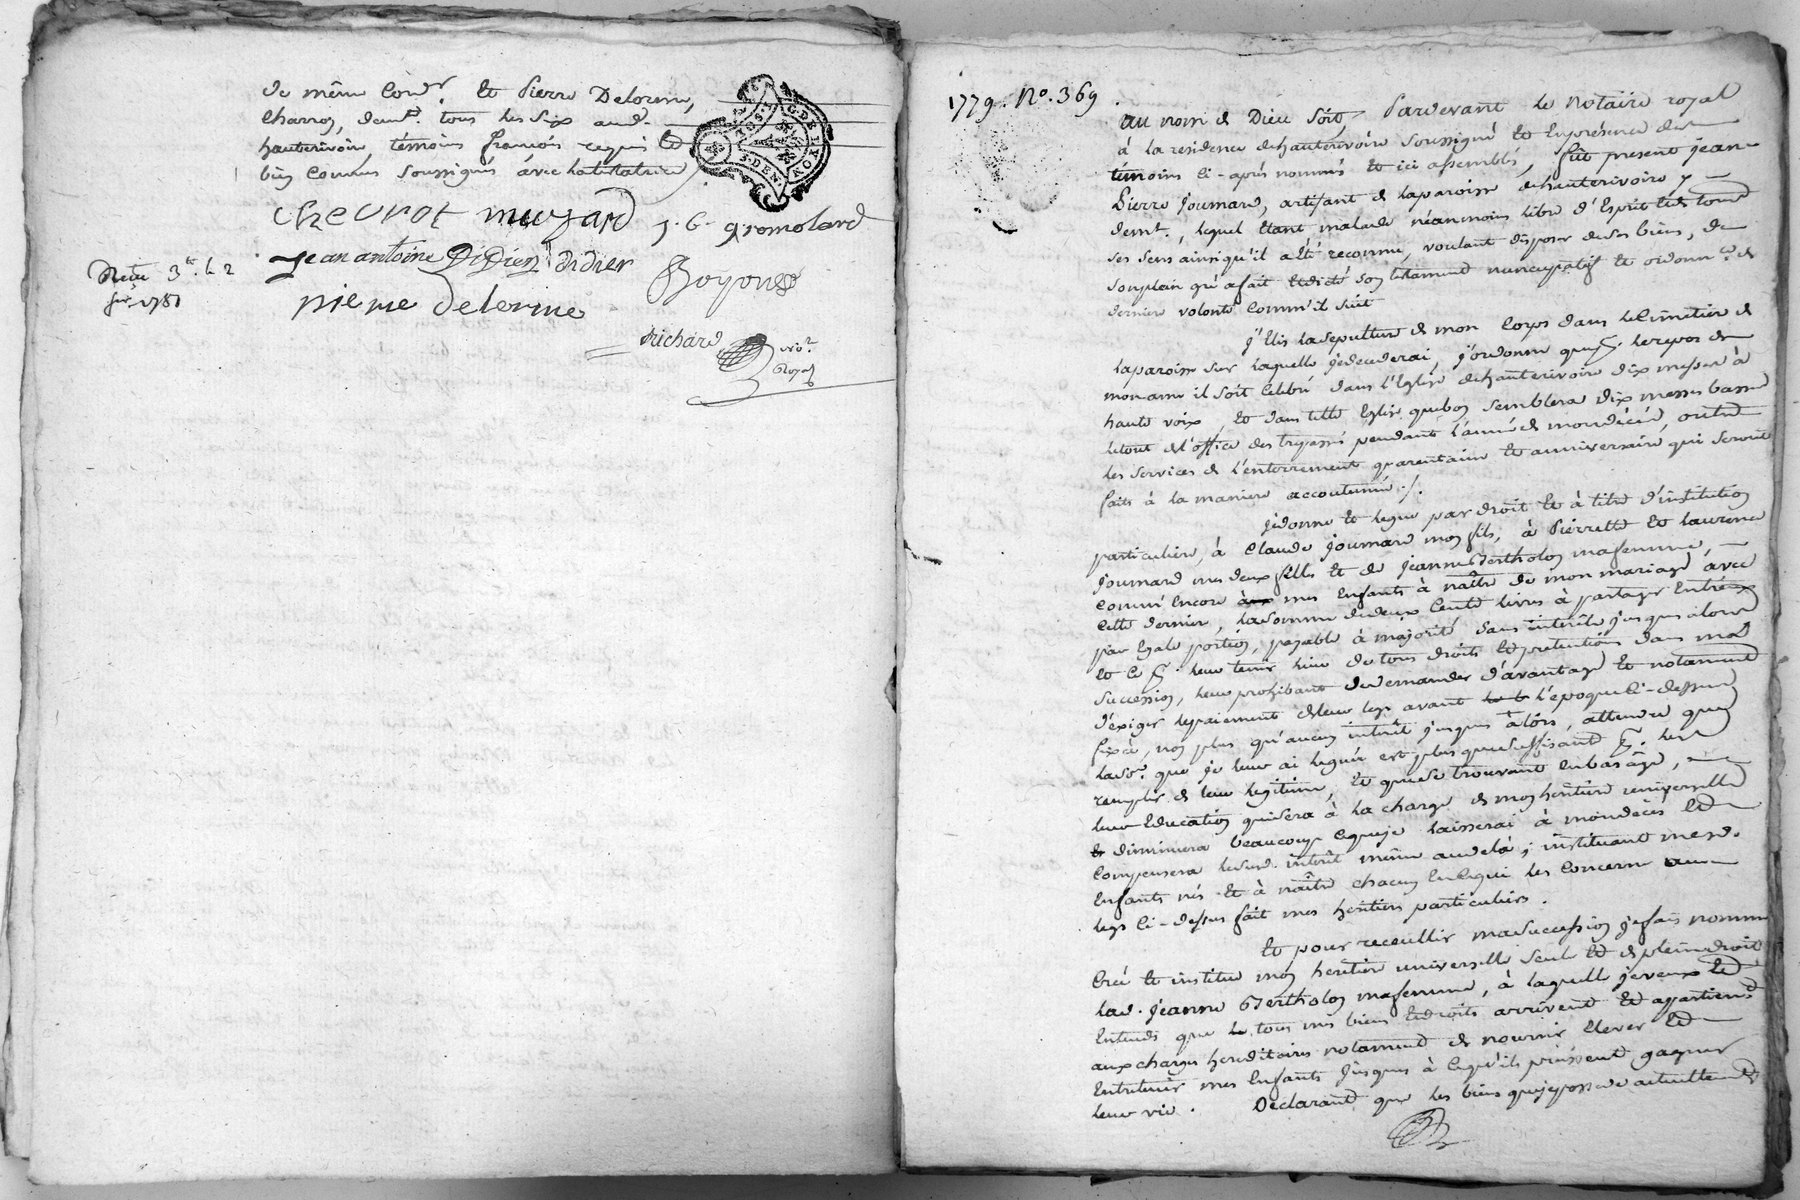 de même cond.r et Pierre Delorme,
charron, dem.t tous les six aud.
hauterivoire témoins françois requis et
bien connus soussignés avec la testatrice
CHECVROT muzard J. G. gromolard
jean antoine DiDier didier
Boyond
pierre delorme
richard no.re
royal
Reçu 3#. le 2
1781
G. DE LYON
2. S. DEN.
1779. N.o 369.
au nom de Dieu soit, Pardevant le notaire royal
à la residence dehauterivoire soussigné et en présence des
témoins ci-après nommés et ici assemblés, fût present jean
Pierre joumard, artisant de laparoisse dehauterivoire y
demt., lequel étant malade néanmoins libre d'Esprit et de tous
ses sens ainsi qu'il a été reconnu, voulant disposer de ses biens, de
son plein gré a fait et dicté son testament nuncupatif et ordonn.ce de
derniere volonté comm'il suit
j'Elis la sepulture de mon corps dans le cimetiere de
la paroisse sur laquelle je decederai, j'ordonne que p. le repos de
mon ame il soit celebré dans l'Eglise dehauterivoire dix messes à
haute voix, et dans telle Eglise que bon semblera dix messes basses
le tout de l'office des trepassés pendant l'année de mon décéd, outre
les services de l'enterrement quarentaine et anniversaire qui seront
faits à la maniere accoutumée ./.
je donne et legue par droit et à titre d'institution
particuliere, à Claude joumard mon fils, à Pierrette et laurence
joumard mes deux filles et de jeanne Bertholon ma femme,
comm'encore aux mes enfants à naître de mon mariage avec
cette derniere, la somme de deux cents livres à partager entr'eux
par égale portion, payable à majorité sans intérêts jusques alors
et ce p. leur tenir lieu de tous droits et pretentions dans ma
succession, leur prohibant de demander d'avantage et notamment
d'exiger le paiement de leur legs avant l'époque ci-dessus
fixée, non plus qu'aucun intérêt jusques àlors, attendu que
la so.e que je leur ai leguée est plus que suffisant p. les
remplir de leur legitime, et que se trouvant en bas âge,
leur Education qui sera à la charge de mon heritiere universelle
diminuera beaucoup ce que je laisserai à mon décès et
compensera lesd. intérêt même au delà ; instituant mesd.
enfants nés et à naître chacun en ce qui les concerne aux
legs ci-dessus fait mes heritiers particuliers.
Et pour receuillir ma succession je fais nomme
crée et institue mon heritiere universelle seule et de plein droit
lad. jeanne Bertholon ma femme, à laquelle je veux et
entends que tous mes biens et droits arrivent et appartiens.t
aux charges hereditaires notament de nourrir élever et
entretenir mes enfants jusques à ce qu'ils puissent gagner
leur vie. Déclarant que les biens que je possede actuellement